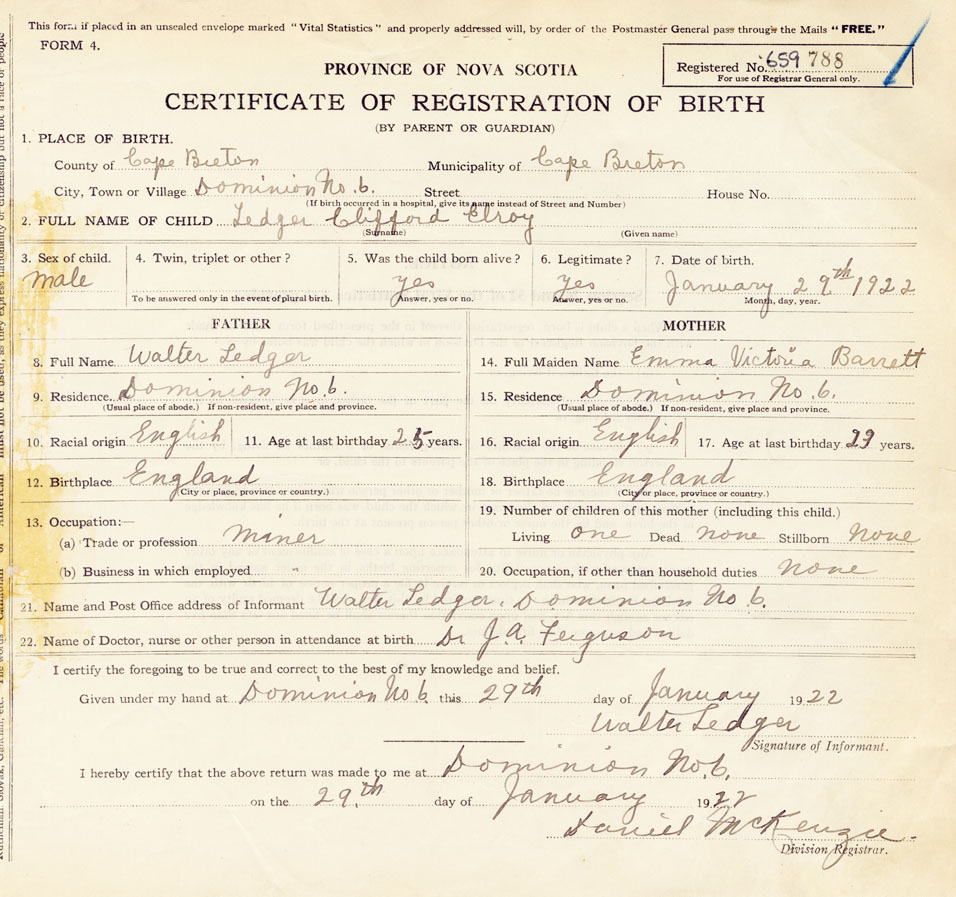 This form if placed in an unsealed envelope marked "Vital Statistics" and properly addressed will, by order of the Postmaster General pass through the Mails "FREE."
FORM 4.
Registered No. 659 788
For use of Registrar General only.
PROVINCE OF NOVA SCOTIA
CERTIFICATE OF REGISTRATION OF BIRTH
(BY PARENT OR GUARDIAN)
1. PLACE OF BIRTH.
County of Cape Breton Municipality of Cape Breton
City, Town or Village Dominion No. 6. Street House No.
(If birth occurred in a hospital, give its name instead of Street and Number)
2. FULL NAME OF CHILD Ledger Clifford Elroy
(Surname) (Given name)
3. Sex of child. 4. Twin, triplet or other? 5. Was the child born alive? 6. Legitimate? 7. Date of birth.
male yes yes January 29th 1922
To be answered only in the event of plural birth. Answer, yes or no. Answer, yes or no. Month, day, year.
FATHER
8. Full Name Walter Ledger
9. Residence. Dominion No. 6.
(Usual place of abode.) If non-resident, give place and province.
10. Racial origin English 11. Age at last birthday 25 years.
12. Birthplace England
(City or place, province or country.)
13. Occupation:—
(a) Trade or profession Miner
(b) Business in which employed "
MOTHER
14. Full Maiden Name Emma Victoria Barrett
15. Residence Dominion No 6.
(Usual place of abode.) If non-resident, give place and province.
16. Racial origin English 17. Age at last birthday 23 years.
18. Birthplace England
(City or place, province or country.)
19. Number of children of this mother (including this child.)
Living one Dead none Stillborn None
20. Occupation, if other than household duties None
21. Name and Post Office address of Informant Walter Ledger. Dominion No 6.
22. Name of Doctor, nurse or other person in attendance at birth Dr J. A. Ferguson
I certify the foregoing to be true and correct to the best of my knowledge and belief.
Given under my hand at Dominion No 6. this 29th day of January 1922
Walter Ledger
Signature of Informant.
I hereby certify that the above return was made to me at Dominion No. 6.
on the 29.th day of January 1922
Daniel McKenzie.
Division Registrar.